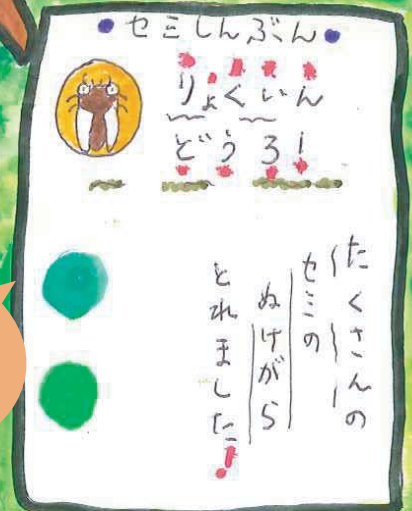 セミしんぶん
りょくいん
どうろ!
たくさんの
セミの
ぬけがら
とれました!